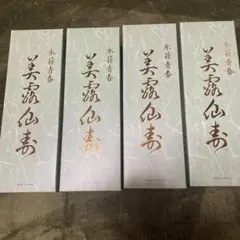 永葆青春
美露仙寿
永葆青春
美露仙寿
永葆青春
美露仙寿
永葆青春
美露仙寿